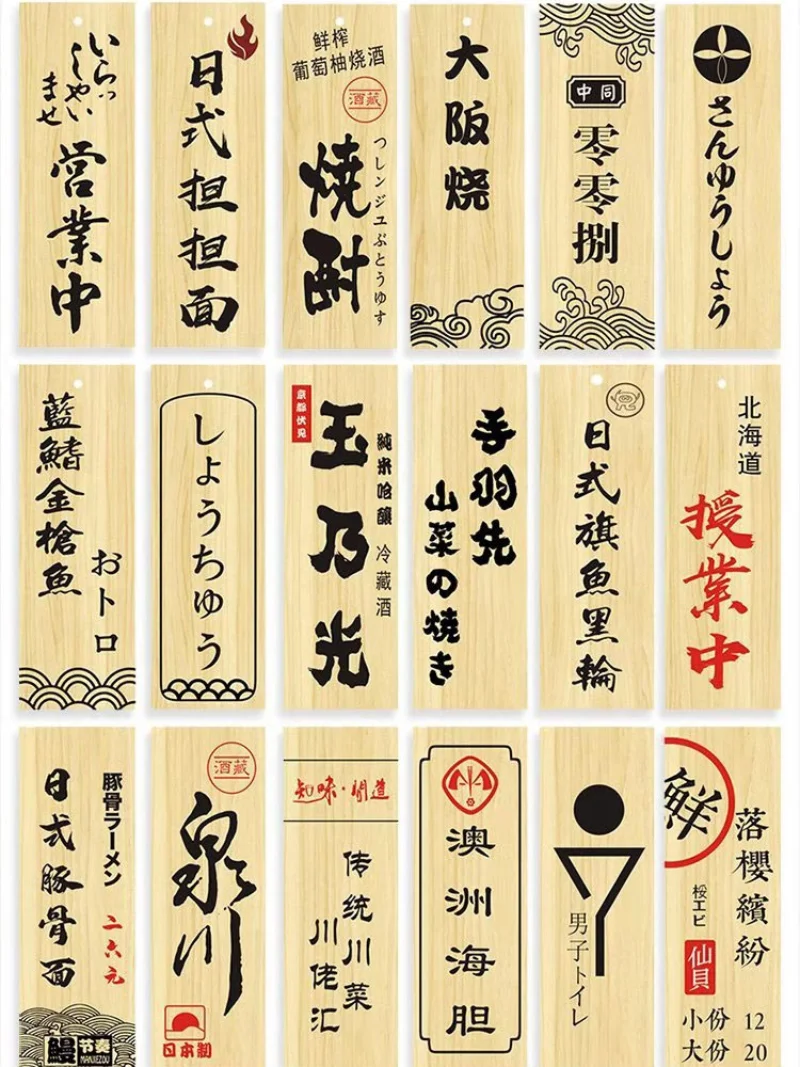 いらっ
しゃい
ませ
営業中
日式担担面
鲜榨
葡萄柚烧酒
酒藏
つしンジユぶとうゆす
焼酎
大阪烧
中同
零零捌
さんゆうしょう
藍鰭金槍魚
おトロ
しょうちゅう
京都伏見
玉乃光
純米吟醸 冷藏酒
手羽先
山菜の焼き
日式旗魚黑輪
北海道
授業中
豚骨ラーメン 二六元
日式豚骨面
鰻节奏
MANJIEZOU
酒藏
泉川
日本制
知味·闻道
传统川菜
川佬汇
澳洲海胆
男子トイレ
鮮
落櫻繽紛
桜エビ
仙貝
小份 12
大份 20